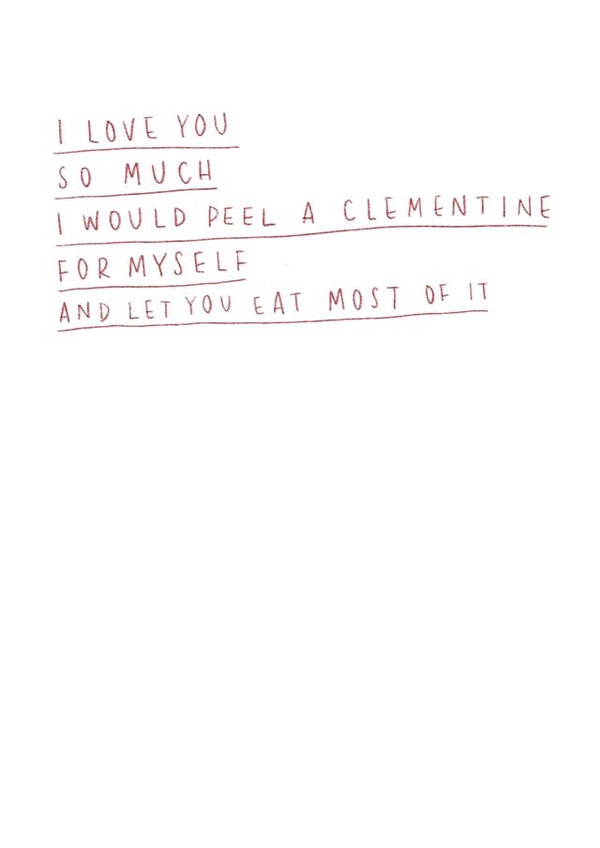 I LOVE YOU
SO MUCH
I WOULD PEEL A CLEMENTINE
FOR MYSELF
AND LET YOU EAT MOST OF IT